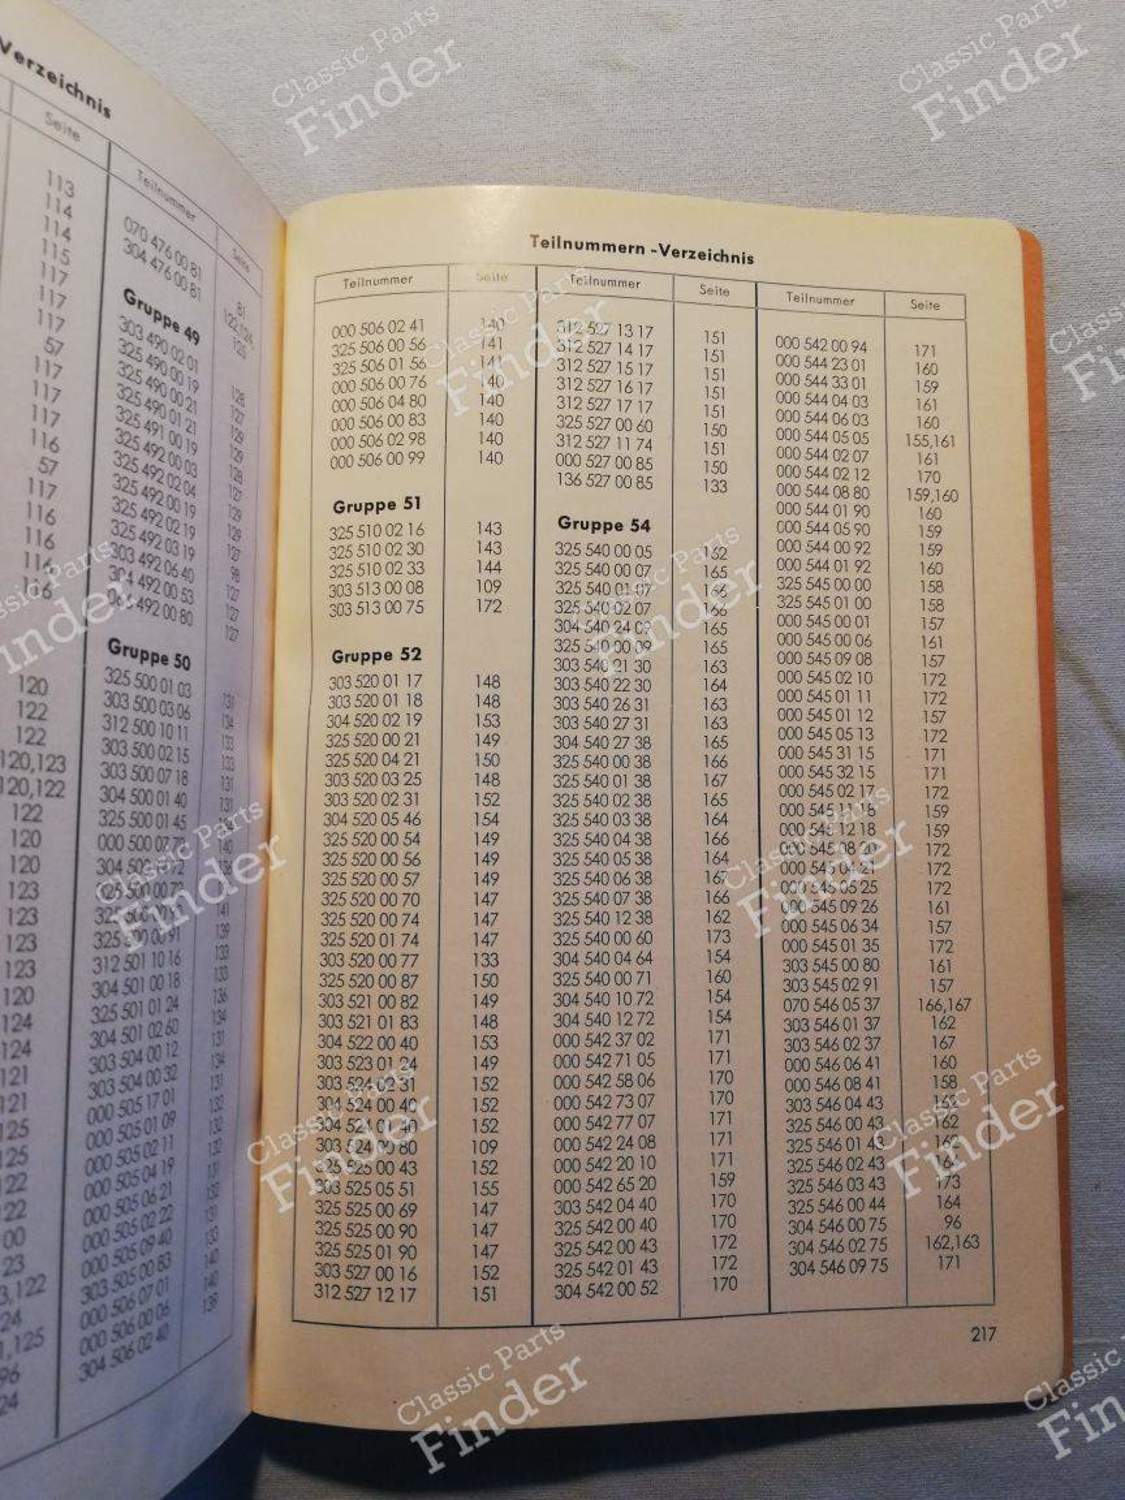 Verzeichnis
Seite
113
114
114
115
117
117
117
57
117
117
117
116
57
117
116
116
116
116
120
122
122
120,123
120,122
122
120
120
123
123
123
123
120
124
124
121
121
125
125
122
122
Teilnummer Seite
070 476 00 81 81
304 476 00 81
Gruppe 49
303 490 02 01
325 490 00 19
325 490 00 21
325 490 01 21
325 491 00 19
325 492 00 03
325 492 02 04
325 492 00 19
325 492 02 19
325 492 03 19
303 492 06 40
304 492 00 53
Gruppe 50
325 500 01 03
303 500 03 06
312 500 10 11
303 500 02 15
303 500 07 18
304 500 01 40
325 500 01 45
312 501 10 16
304 501 00 18
325 501 01 24
304 501 02 60
303 504 00 12
303 504 00 32
000 505 17 01
000 505 01 09
000 505 02 11
000 505 04 19
000 505 06 21
000 505 02 22
000 505 09 40
303 505 00 83
000 506 07 01
000 506 00 06
304 506 02 40
Teilnummern-Verzeichnis
Teilnummer Seite
000 506 02 41 140
325 506 00 56 141
325 506 01 56 141
000 506 00 76 140
000 506 04 80 140
000 506 00 83 140
000 506 02 98 140
000 506 00 99 140
Gruppe 51
325 510 02 16 143
325 510 02 30 143
325 510 02 33 144
303 513 00 08 109
303 513 00 75 172
Gruppe 52
303 520 01 17 148
303 520 01 18 148
304 520 02 19 153
325 520 00 21 149
325 520 04 21 150
303 520 03 25 148
303 520 02 31 152
304 520 05 46 154
325 520 00 54 149
325 520 00 56 149
325 520 00 57 149
325 520 00 70 147
325 520 00 74 147
325 520 01 74 147
303 520 00 77 133
325 520 00 87 150
303 521 00 82 149
303 521 01 83 148
304 522 00 40 153
303 523 01 24 149
303 524 02 31 152
304 524 00 40 152
304 524 01 40 152
303 524 00 80 109
325 525 00 43 152
303 525 05 51 155
325 525 00 69 147
325 525 00 90 147
325 525 01 90 147
303 527 00 16 152
312 527 12 17 151
Teilnummer Seite
312 527 13 17 151
312 527 14 17 151
312 527 15 17 151
312 527 16 17 151
312 527 17 17 151
325 527 00 60 150
312 527 11 74 151
000 527 00 85 150
136 527 00 85 133
Gruppe 54
325 540 00 05 162
325 540 00 07 165
325 540 01 07 166
325 540 02 07 166
304 540 24 09 165
325 540 00 09 165
303 540 21 30 163
303 540 22 30 164
303 540 26 31 163
303 540 27 31 163
304 540 27 38 165
325 540 00 38 166
325 540 01 38 167
325 540 02 38 165
325 540 03 38 164
325 540 04 38 166
325 540 05 38 164
325 540 06 38 167
325 540 07 38 166
325 540 12 38 162
325 540 00 60 173
304 540 04 64 154
325 540 00 71 160
304 540 10 72 154
304 540 12 72 154
000 542 37 02 171
000 542 71 05 171
000 542 58 06 170
000 542 73 07 170
000 542 77 07 171
000 542 24 08 171
000 542 20 10 171
000 542 65 20 159
303 542 04 40 170
325 542 00 40 170
325 542 00 43 172
325 542 01 43 172
304 542 00 52 170
Teilnummer Seite
000 542 00 94 171
000 544 23 01 160
000 544 33 01 159
000 544 04 03 161
000 544 06 03 160
000 544 05 05 155,161
000 544 02 07 161
000 544 02 12 170
000 544 08 80 159,160
000 544 01 90 160
000 544 05 90 159
000 544 00 92 159
000 544 01 92 160
325 545 00 00 158
325 545 01 00 158
000 545 00 01 157
000 545 00 06 161
000 545 09 08 157
000 545 02 10 172
000 545 01 11 172
000 545 01 12 157
000 545 05 13 172
000 545 31 15 171
000 545 32 15 171
000 545 02 17 172
000 545 11 18 159
000 545 12 18 159
000 545 08 20 172
000 545 04 21 172
000 545 05 25 172
000 545 09 26 161
000 545 06 34 157
000 545 01 35 172
303 545 00 80 161
303 545 02 91 157
070 546 05 37 166,167
303 546 01 37 162
303 546 02 37 167
000 546 06 41 160
000 546 08 41 158
303 546 04 43
325 546 00 43 162
325 546 01 43 162
325 546 02 43
325 546 03 43 173
325 546 00 44 164
304 546 00 75 96
304 546 02 75 162,163
304 546 09 75 171
217
Classic Parts
Finder
Classic Parts
Finder
Classic Parts
Finder
Classic Parts
Finder
Classic Parts
Finder
Classic Parts
Finder
Classic Parts
Finder
Classic Parts
Finder
Classic Parts
Finder